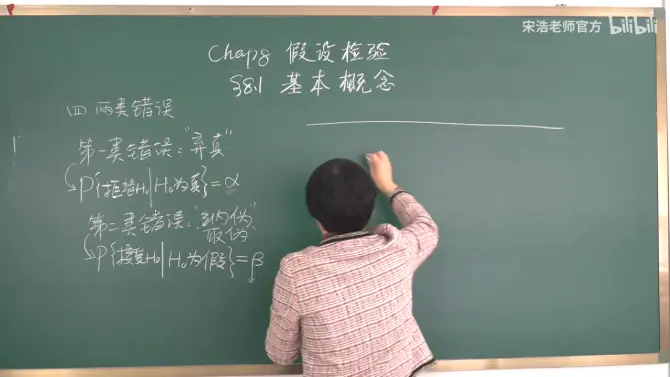 宋浩老师官方 bilibili
Chap8 假设检验
§8.1 基本概念
四 两类错误
第一类错误:"弃真"
P{拒绝H₀|H₀为真}=α
第二类错误:"纳伪"
"取伪"
P{接受H₀|H₀为假}=β